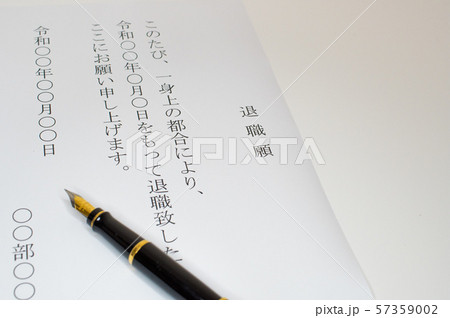 退職願
このたび、一身上の都合により、
令和〇〇年〇月〇日をもって退職致した
ここにお願い申し上げます。
令和〇〇年〇〇月〇〇日
〇〇部〇〇
PIXTA
pixta.jp - 57359002